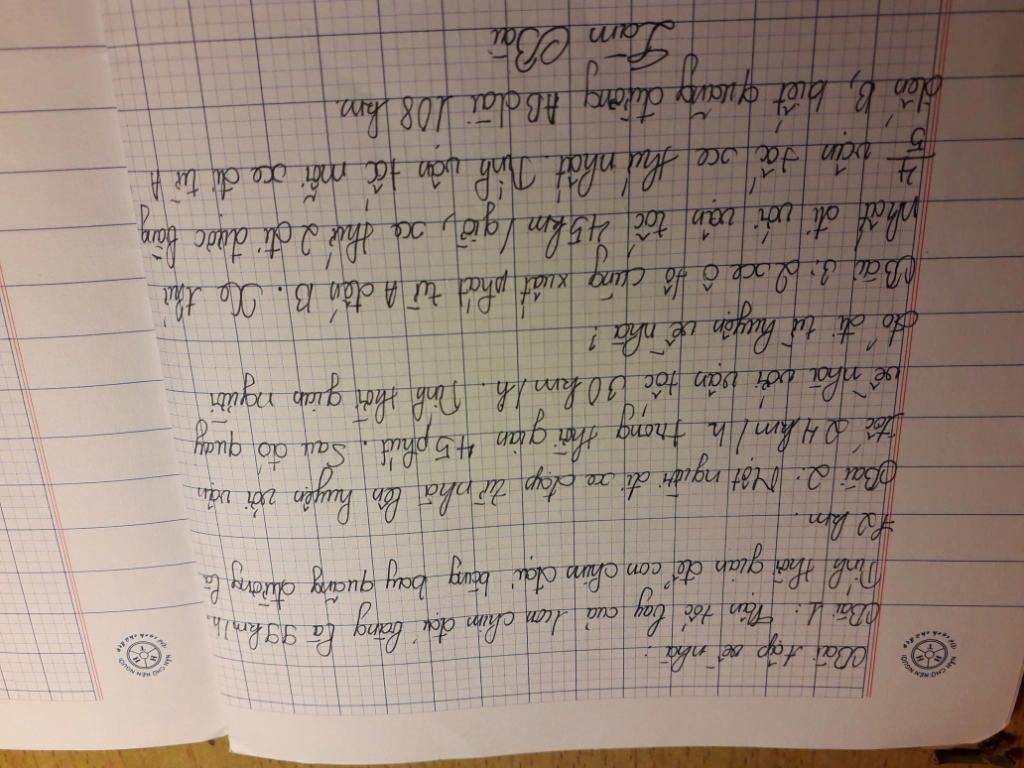 Bài tập về nhà:
Bài 1: Vận tốc bay của con chim đại bàng là 99km/h.
Tính thời gian để con chim đại bàng bay quãng đường là
72 km.
Bài 2: Một người đi xe đạp từ nhà lên huyện với vận
tốc 24km/h trong thời gian 45 phút. Sau đó quay
về nhà với vận tốc 30km/h. Tính thời gian người
đó đi từ huyện về nhà?
Bài 3: 2 xe ô tô cùng xuất phát từ A đến B. Xe thứ
nhất đi với vận tốc 45km/giờ, xe thứ 2 đi được bằng
4/5 vận tốc xe thứ nhất. Tính vận tốc mỗi xe đi từ A
đến B, biết quãng đường AB dài 108 km.
Làm Bài
NÉT CHỮ NẾT NGƯỜI
NÉT CHỮ NẾT NGƯỜI